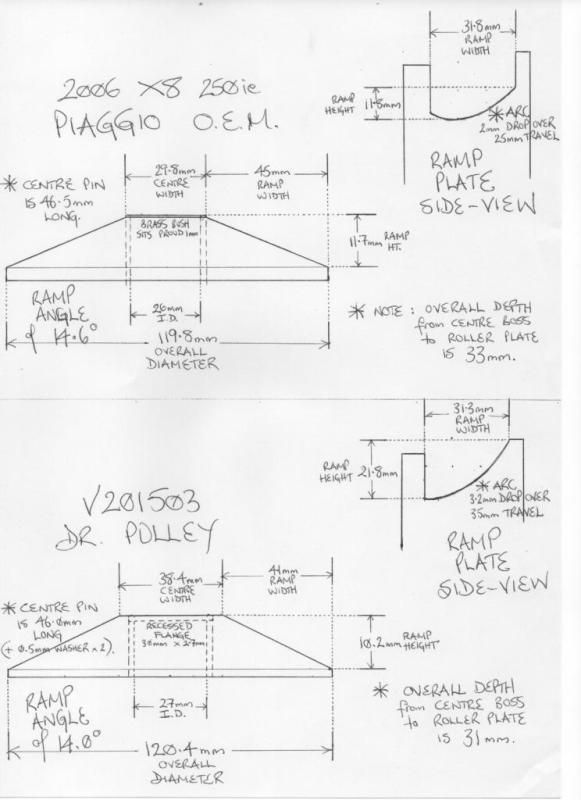 2006 X8 250ie
PIAGGIO O.E.M.
31.8mm
RAMP
WIDTH
RAMP
HEIGHT
11.8mm
* ARC
2mm DROP OVER
25mm TRAVEL
RAMP
PLATE
SIDE-VIEW
* CENTRE PIN
IS 46.5mm
LONG.
29.8mm
CENTRE
WIDTH
45mm
RAMP
WIDTH
BRASS BUSH
SITS PROUD 1mm
11.7mm RAMP
HT.
RAMP
ANGLE
of 14.6°
26mm
I.D.
119.8mm
OVERALL
DIAMETER
* NOTE: OVERALL DEPTH
from CENTRE BOSS
to ROLLER PLATE
IS 33mm.
V201503
DR. PULLEY
31.3mm
RAMP
WIDTH
RAMP
HEIGHT
21.8mm
* ARC
3.2mm DROP OVER
35mm TRAVEL
RAMP
PLATE
SIDE-VIEW
* CENTRE PIN
IS 46.0mm
LONG
(+ 0.5mm WASHER x 2).
38.4mm
CENTRE
WIDTH
41mm
RAMP
WIDTH
RECESSED
FLANGE
30mm x 2.7mm
10.2mm RAMP
HEIGHT
RAMP
ANGLE
of 14.0°
27mm
I.D.
120.4mm
OVERALL
DIAMETER
* OVERALL DEPTH
from CENTRE BOSS
to ROLLER PLATE
IS 31mm.